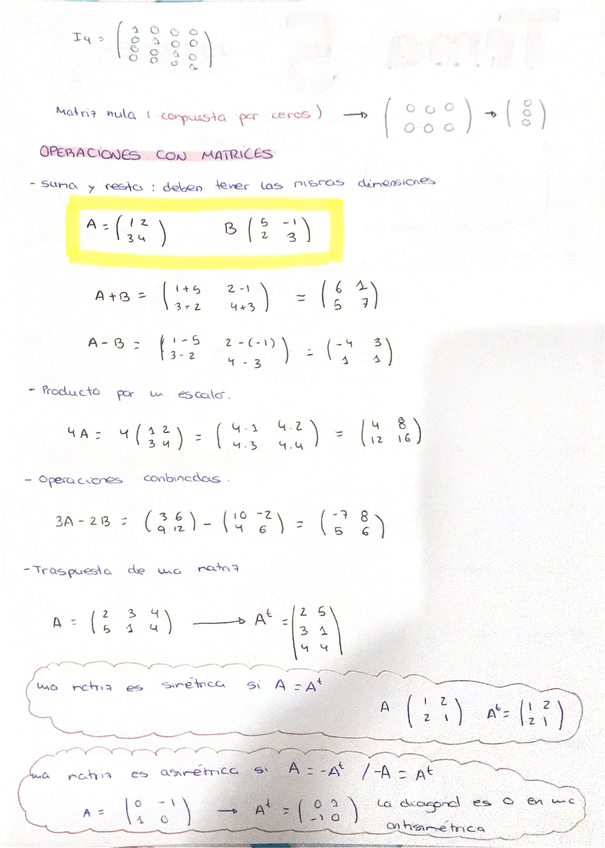 I4 = ( 1 0 0 0 / 0 1 0 0 / 0 0 1 0 / 0 0 0 1 )
Matriz nula ( conpuesta por ceros ) → ( 0 0 0 / 0 0 0 ) → ( 0 / 0 / 0 )
OPERACIONES CON MATRICES
- Suma y resta : deben tener las mismas dimensiones
A = ( 1 2 / 3 4 ) B ( 5 -1 / 2 3 )
A+B = ( 1+5 2-1 / 3+2 4+3 ) = ( 6 1 / 5 7 )
A-B = ( 1-5 2-(-1) / 3-2 4-3 ) = ( -4 3 / 1 1 )
- Producto por un escalar.
4A = 4 ( 1 2 / 3 4 ) = ( 4.1 4.2 / 4.3 4.4 ) = ( 4 8 / 12 16 )
- Operaciones conbinadas.
3A-2B = ( 3 6 / 9 12 ) - ( 10 -2 / 4 6 ) = ( -7 8 / 5 6 )
- Traspuesta de una matriz
A = ( 2 3 4 / 5 1 4 ) → At = ( 2 5 / 3 1 / 4 4 )
una matriz es simétrica si A = At
A ( 1 2 / 2 1 ) At = ( 1 2 / 2 1 )
una matriz es asimétrica si A = -At / -A = At
A = ( 0 -1 / 1 0 ) → At = ( 0 1 / -1 0 ) La diagonal es 0 en una
antisimétrica